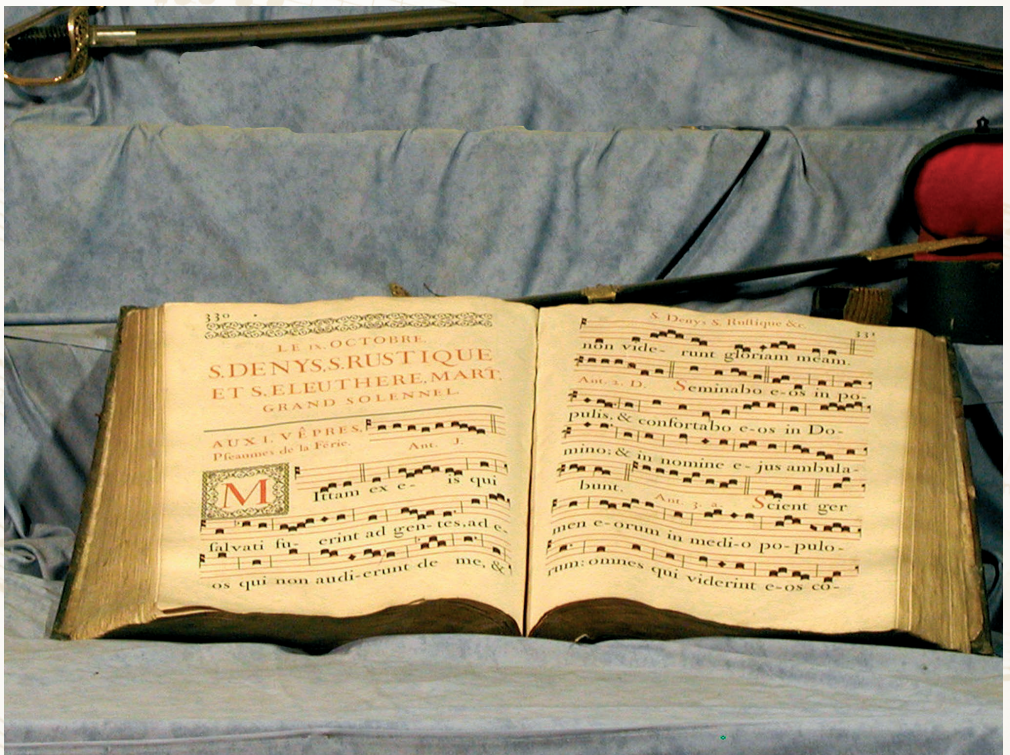 330
LE IX. OCTOBRE.
S. DENYS, S. RUSTIQUE
ET S. ELEUTHERE, MART.
GRAND SOLENNEL.
AUX I. VÊPRES,
Pſeaumes de la Férie.
Ant. J.
MIttam ex e- is qui
ſalvati fu- erint ad gen-tes, ad e-
os qui non audi-erunt de me, &
S. Denys S. Ruſtique &c. 331
non vide- runt gloriam meam.
Ant. 2. D. Seminabo e-os in po-
pulis, & confortabo e-os in Do-
mino; & in nomine e-jus ambula-
bunt. Ant. 3. a. Scient ger
men e-orum in medi-o po-pulo-
rum: omnes qui viderint e-os co-